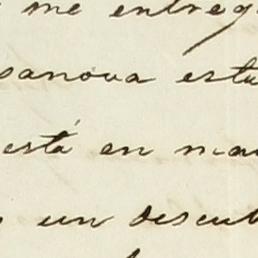 me entreg
sanova estu
está en ma
un descub